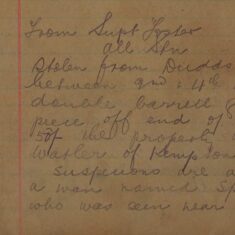 From Supt Foster
all Stn
Stolen from Duddo
between 2nd & 4th
double barrell
piece off end of
of the property
Watler of Kempton
Suspicions are a
a man named Sp
who was seen near